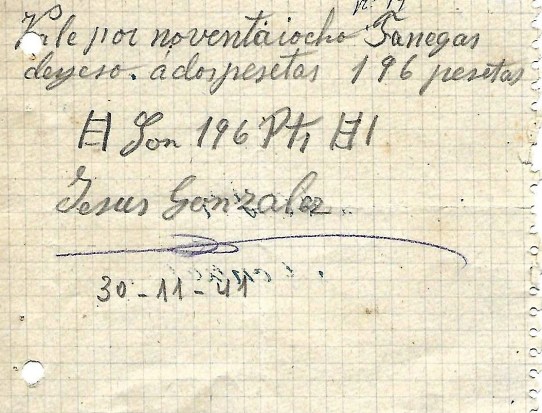 nº 19
Vale por noventaiocho Fanegas
deyeso. adospesetas 196 pesetas
# Son 196 Pts #
Jesus Gonzalez
30-11-41